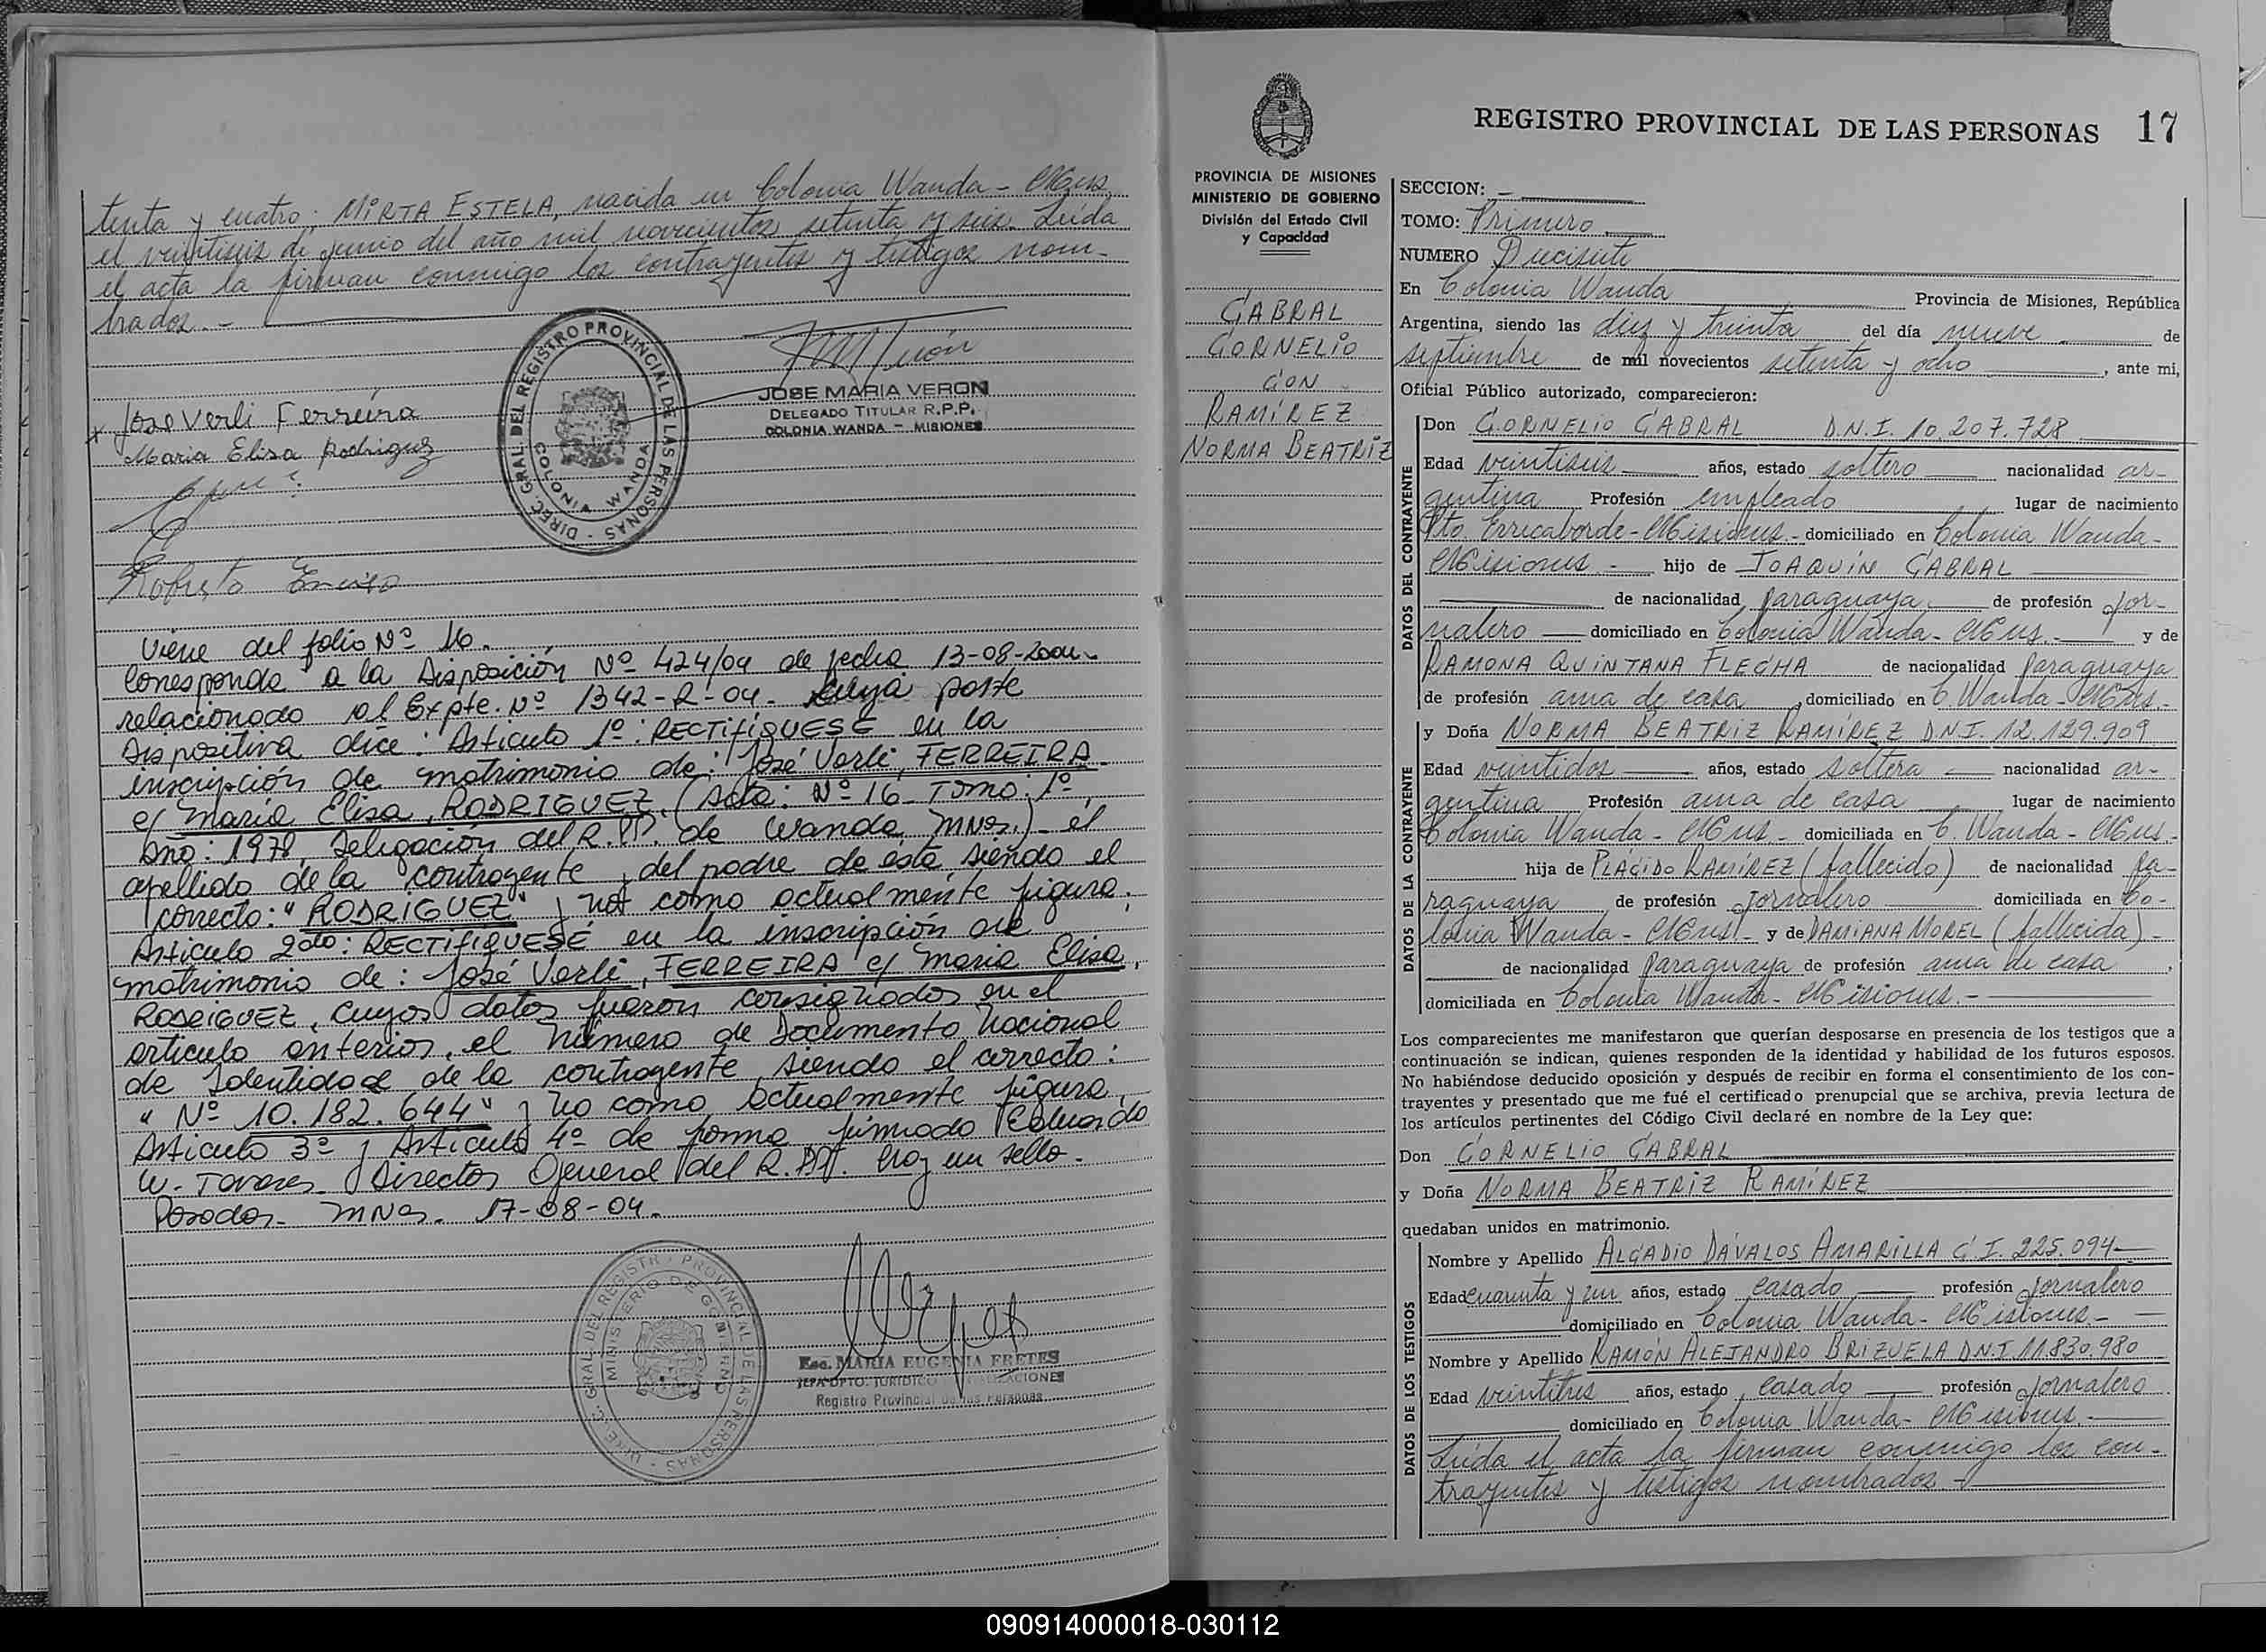 tenta y cuatro; MIRTA ESTELA, nacida en Colonia Wanda - Mnes,
el veintiseis de junio del año mil novecientos setenta y seis. Leída
el acta la firman conmigo los contrayentes y testigos nom-
brados. -
JOSE MARIA VERON
DELEGADO TITULAR R.P.P.
COLONIA WANDA - MISIONES
DIREC. GRAL. DEL REGISTRO PROVINCIAL DE LAS PERSONAS -
COLONIA WANDA
x Jose Verli Ferreira
Maria Elisa Rodriguez
Roberto Enciso
Viene del folio Nº 16.
Corresponde a la Disposición Nº 424/04 de fecha 13-08-2004
relacionado al Expte. Nº 1342-R-04. Cuya parte
dispositiva dice: Artículo 1º: RECTIFIQUESE en la
inscripción de matrimonio de: José Verli, FERREIRA
c/ María Elisa, RODRIGUEZ, (Acta: Nº 16 Tomo: 1º,
Año: 1978, Delegación del R.PP. de Wanda Mnes.) - el
apellido de la contrayente y del padre de ésta siendo el
correcto: "RODRIGUEZ" y no como actualmente figura.
Artículo 2do: RECTIFIQUESE en la inscripción de
matrimonio de: José Verli, FERREIRA c/ María Elisa,
RODRIGUEZ, cuyos datos fueron consignados en el
artículo anterior, el número de Documento Nacional
de Identidad de la contrayente siendo el correcto:
"Nº 10.182.644" y no como actualmente figura.
Artículo 3º y Artículo 4º de forma firmado Eduardo
W. Tavares Director General del R.PP. Hay un sello.
Posadas - Mnes. 17-08-04.
DIREC. GRAL. DEL REGISTR PROVINCIAL DE LAS PERSONAS -
MINISTERIO DE GOBIERNO
Esc. MARIA EUGENIA FRETES
Registro Provincial de las Personas
REGISTRO PROVINCIAL DE LAS PERSONAS 17
PROVINCIA DE MISIONES
MINISTERIO DE GOBIERNO
División del Estado Civil
y Capacidad
CABRAL
CORNELIO
CON
RAMÍREZ
NORMA BEATRIZ
SECCION: -
TOMO: Primero
NUMERO Diecisiete
En Colonia Wanda Provincia de Misiones, República
Argentina, siendo las diez y treinta del día nueve de
septiembre de mil novecientos setenta y ocho, ante mi,
Oficial Público autorizado, comparecieron:
DATOS DEL CONTRAYENTE
Don CORNELIO CABRAL D.N.I. 10.207.728
Edad veintiseis años, estado soltero nacionalidad ar-
gentina Profesión empleado lugar de nacimiento
Pto. Erricaborde - Misiones - domiciliado en Colonia Wanda -
Misiones - hijo de JOAQUÍN CABRAL
de nacionalidad paraguaya de profesión jor-
nalero domiciliado en Colonia Wanda - Mnes. - y de
RAMONA QUINTANA FLECHA de nacionalidad paraguaya
de profesión ama de casa, domiciliado en C. Wanda - Mnes. -
DATOS DE LA CONTRAYENTE
y Doña NORMA BEATRIZ RAMÍREZ D.N.I. 12.129.909
Edad veintidos años, estado soltera nacionalidad ar-
gentina Profesión ama de casa lugar de nacimiento
Colonia Wanda - Mnes. - domiciliada en C. Wanda - Mnes. -
hija de PLÁCIDO RAMÍREZ (fallecido) de nacionalidad pa-
raguaya de profesión jornalero domiciliada en Co-
lonia Wanda - Mnes. - y de DAMIANA MOREL (fallecida) -
de nacionalidad paraguaya de profesión ama de casa,
domiciliada en Colonia Wanda - Misiones. -
Los comparecientes me manifestaron que querían desposarse en presencia de los testigos que a
continuación se indican, quienes responden de la identidad y habilidad de los futuros esposos.
No habiéndose deducido oposición y después de recibir en forma el consentimiento de los con-
trayentes y presentado que me fué el certificado prenupcial que se archiva, previa lectura de
los artículos pertinentes del Código Civil declaré en nombre de la Ley que:
Don CORNELIO CABRAL
y Doña NORMA BEATRIZ RAMÍREZ
quedaban unidos en matrimonio.
DATOS DE LOS TESTIGOS
Nombre y Apellido ALCADIO DÁVALOS AMARILLA C.I. 225.094
Edad cuarenta y un años, estado casado profesión jornalero
domiciliado en Colonia Wanda - Misiones -
Nombre y Apellido RAMÓN ALEJANDRO BRIZUELA D.N.I 11.830.980
Edad veintitres años, estado casado profesión jornalero
domiciliado en Colonia Wanda - Misiones. -
Leída el acta la firman conmigo los con-
trayentes y testigos nombrados. -
090914000018-030112